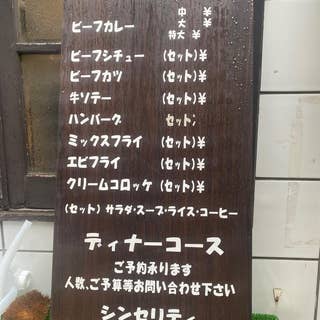 中 ¥
ビーフカレー 大 ¥
特大 ¥
ビーフシチュー (セット)¥
ビーフカツ (セット)¥
牛ソテー (セット)¥
ハンバーグ セット
ミックスフライ (セット)¥
エビフライ (セット)¥
クリームコロッケ (セット)¥
(セット) サラダ・スープ・ライス・コーヒー
ディナーコース
ご予約承ります
人数、ご予算等お問い合わせ下さい
シンセリティ